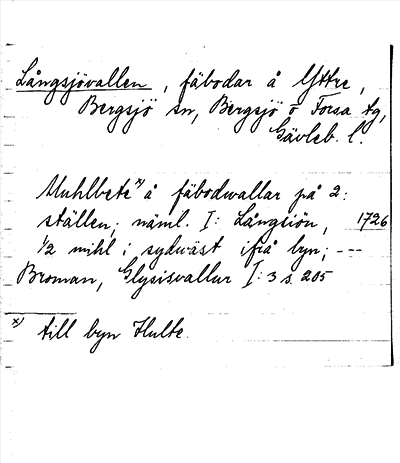 Långsjövallen, fäbodar å Yttre,
Bergsjö sn, Bergsjö o Forsa tg,
Gävleb. l.
Muhlbete x) å fäbodwallar på 2:
ställen; näml. I: Långsiön, 1726
1/2 mihl i sydwäst ifrå byn; ---
Broman, Glysisvallur I: 3 s. 205
x) till byn Hulte.